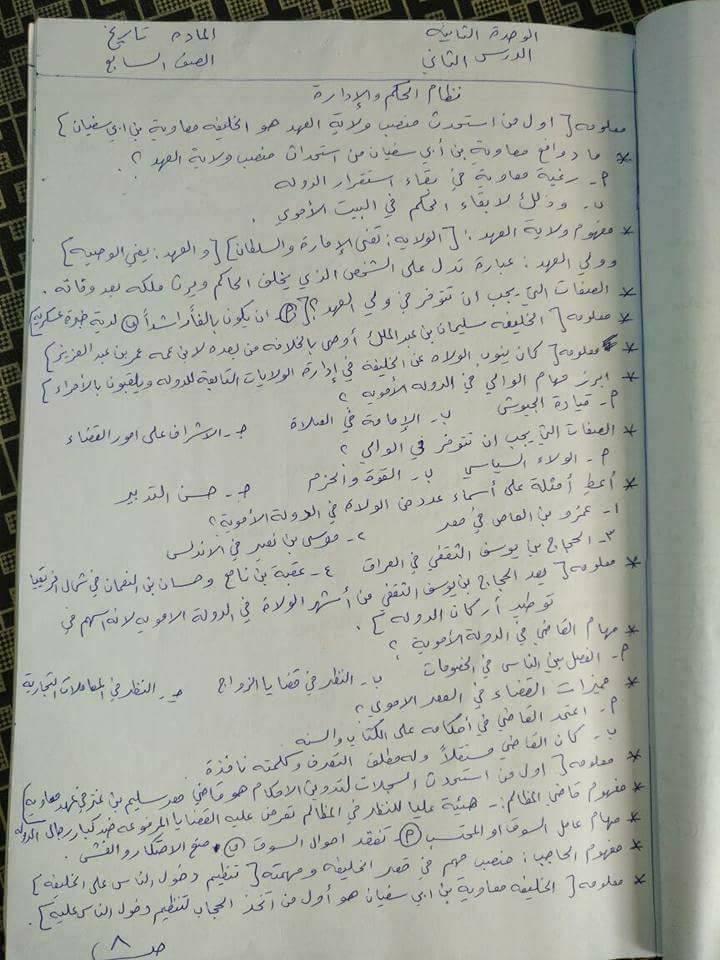 الوحدة الثانية المادة تاريخ
الدرس الثاني الصف السابع
نظام الحكم والإدارة
معلومه [ اول من استحدث منصب ولاية العهد هو الخليفه معاوية بن ابي سفيان ]
* ما دوافع معاوية بن أبي سفيان من استحداث منصب ولاية العهد ؟
أ- رغبة معاوية في بقاء استقرار الدوله
ب- وذلك لابقاء الحكم في البيت الأموي .
* مفهوم ولاية العهد : [ الولاية : تعني الإمارة والسلطان ] [ و العهد : يعني الوصية ]
وولي العهد : عبارة تدل على الشخص الذي يخلف الحاكم ويرث ملكه بعد وفاته .
* الصفات التي يجب ان تتوفر في ولي العهد ؟ [ أ- ان يكون بالغاً راشداً ب لدية خبرة عسكرية ]
* معلومه [ الخليفه سليمان بن عبد الملك أوصى بالخلافه من بعده لابن عمه عمر بن عبد العزيز ]
* معلومه [ كان ينوب الولاة عن الخليفة في إدارة الولايات التابعة للدوله ويلقبون بالأمراء ]
* ابرز مهام الوالي في الدوله الأموية ؟
أ- قيادة الجيوش ب- الإمامة في الصلاة ج- الاشراف على امور القضاء
* الصفات التي يجب ان تتوفر في الوالي ؟
أ- الولاء السياسي ب- القوة والحزم ج- حسن التدبير
* أعطِ أمثلة على أسماء عدد من الولاة في الدولة الأموية ؟
١- عمرو بن العاص في مصر ٢- موسى بن نصير في الاندلس
٣- الحجاج بن يوسف الثقفي في العراق ٤- عقبة بن نافع وحسان بن النعمان في شمال افريقيا
* معلومه [ يعد الحجاج بن يوسف الثقفي من أشهر الولاة في الدولة الامويه لانه اسهم في
توطيد أركان الدولة ] .
* مهام القاضي في الدولة الأموية ؟
أ- الفصل بين الناس في الخصومات ب- النظر في قضايا الزواج ج- النظر في المعاملات التجارية
* مميزات القضاء في العصر الاموي ؟
أ- اعتمد القاضي في أحكامه على الكتاب والسنه
ب- كان القاضي مستقلاً وله مطلق التصرف وكلمته نافذة
* معلومه [ اول من استحدث السجلات لتدوين الاحكام هو قاضي مصر سليم بن عنز في عهد معاويه ]
* مفهوم قاضي المظالم :- هيئة عليا للنظر في المظالم تعرض عليه القضايا المرفوعه ضد كبار رجال الدوله
* مهام عامل السوق او المحتسب أ- تفقد احوال السوق ب- منع الاحتكار والغش .
* مفهوم الحاجب : منصب مهم في قصر الخليفه ومهمته [ تنظيم دخول الناس على الخليفه ]
* معلومه [ الخليفه معاوية بن ابي سفيان هو أول من اتخذ الحجاب لتنظيم دخول الناس عليه ] .
ص ٨